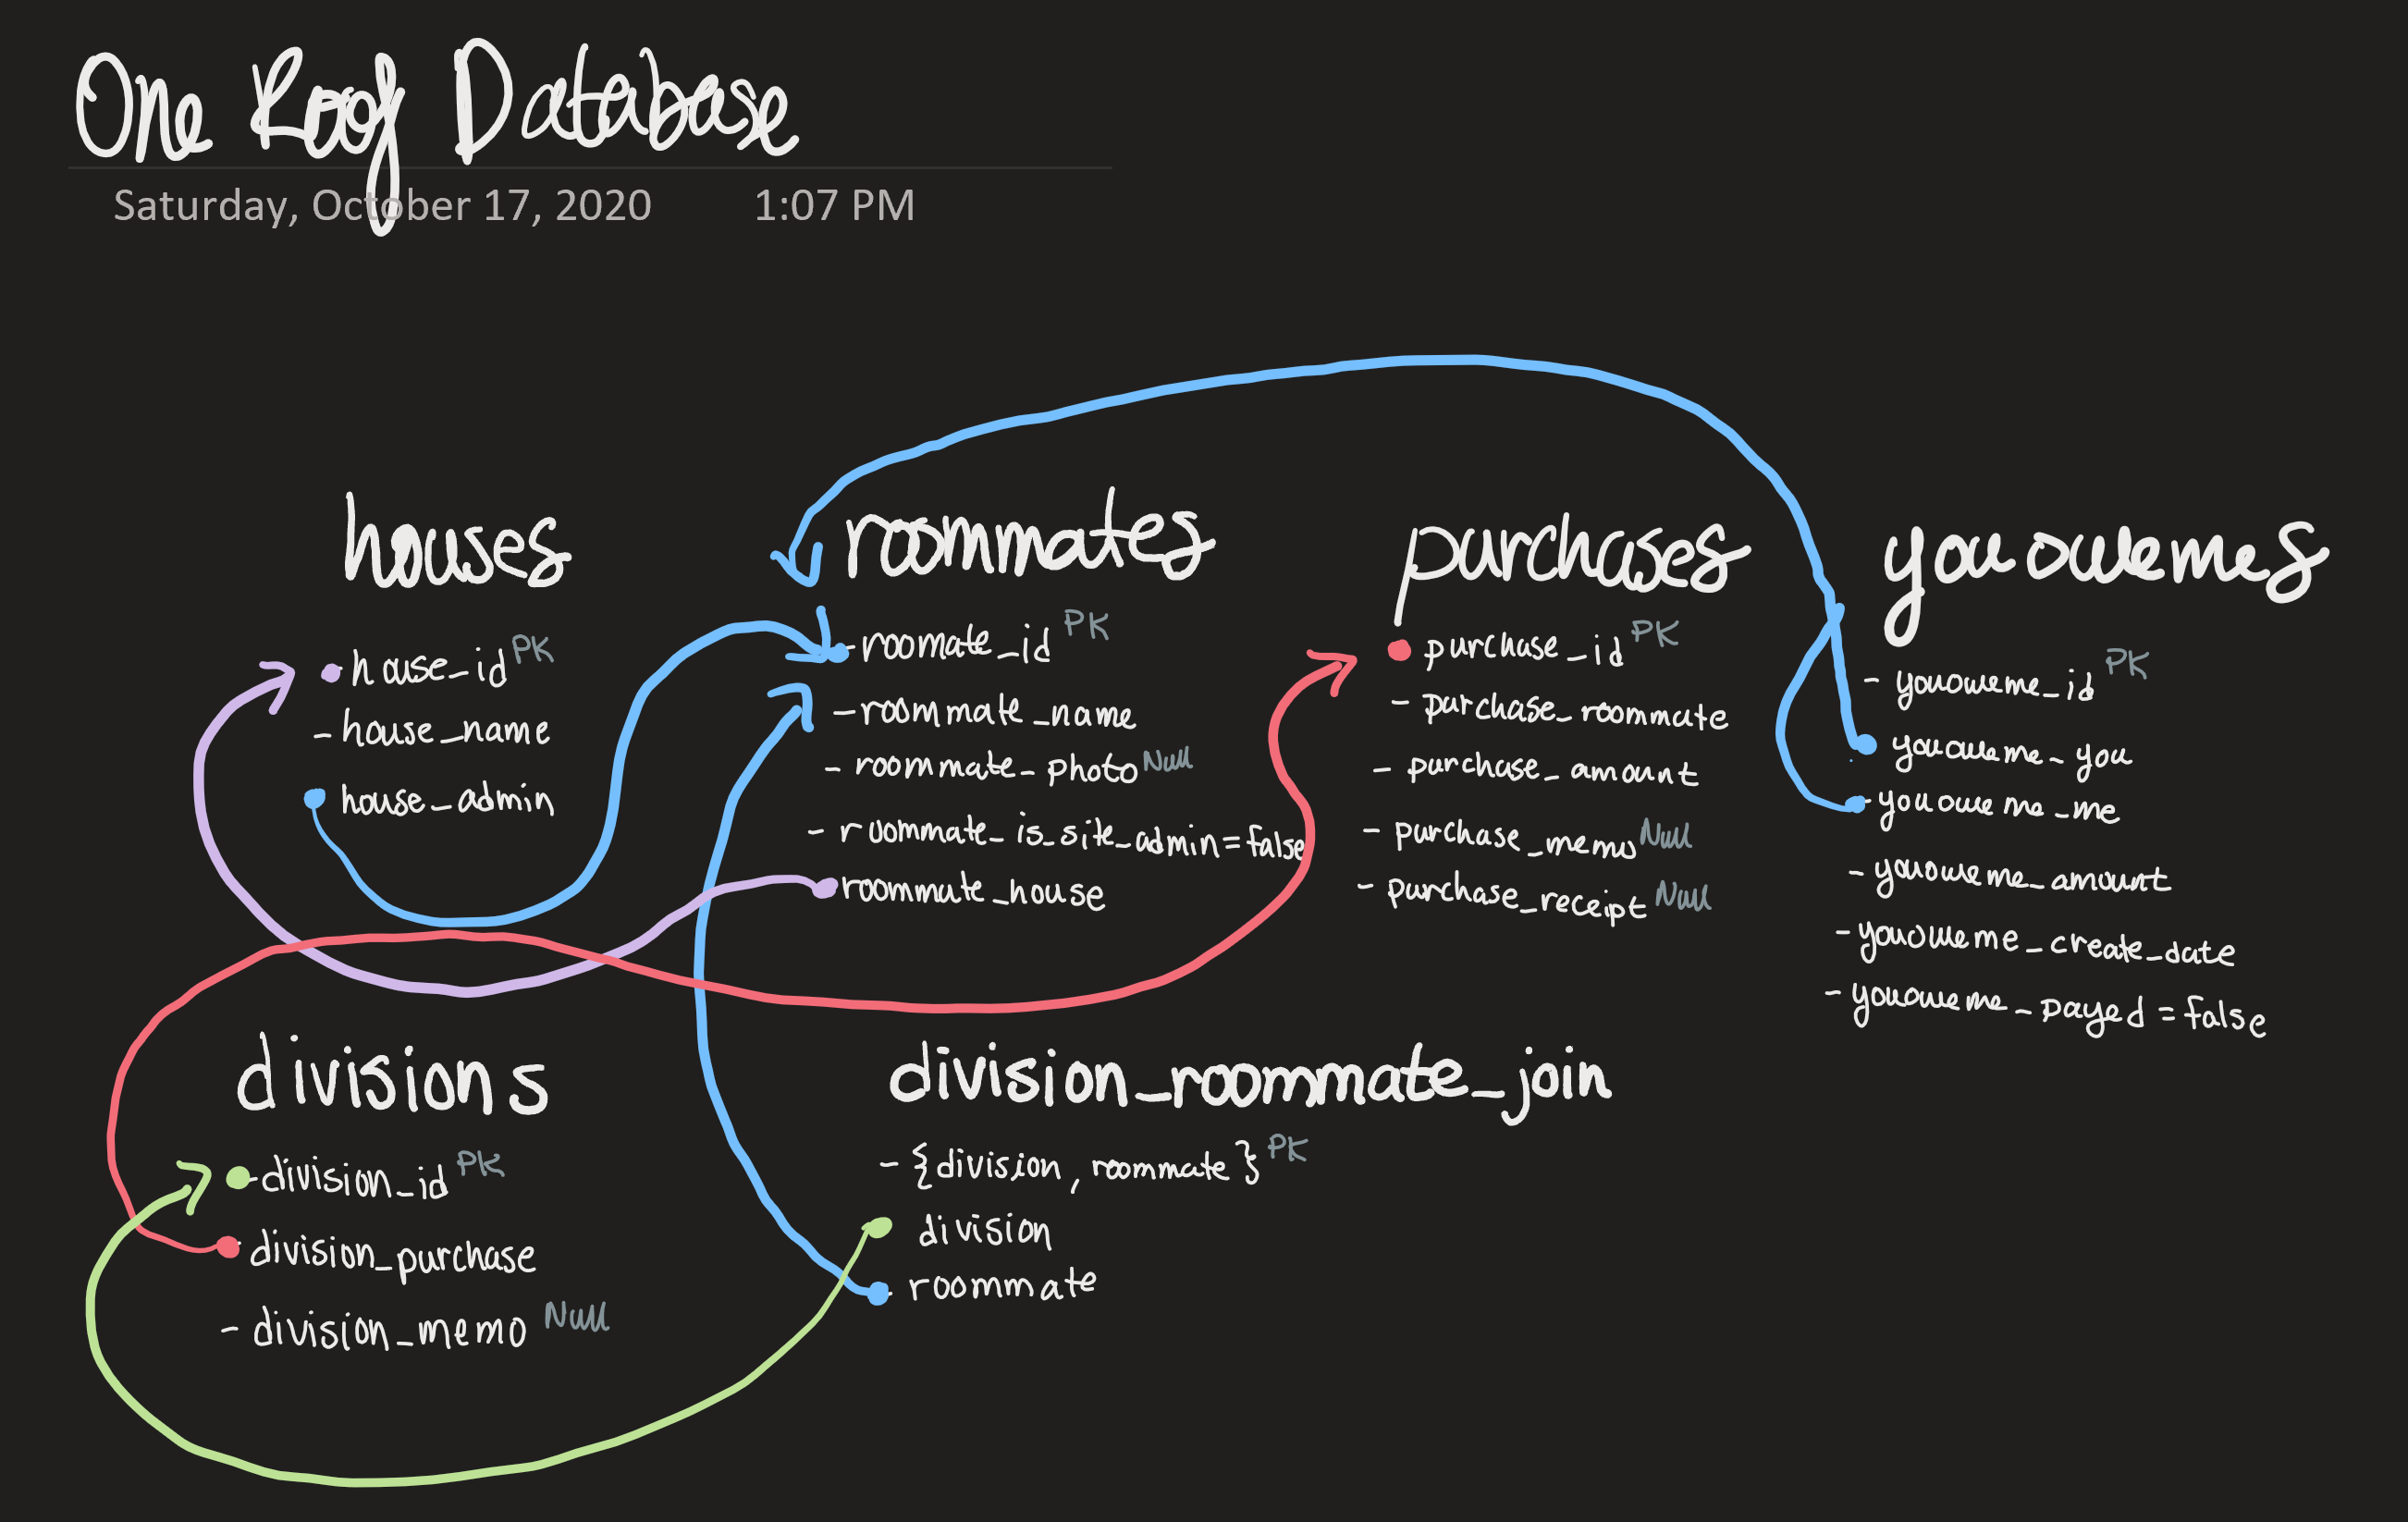 One Roof Database
Saturday, October 17, 2020 1:07 PM
houses
- house_id PK
- house_name
house_admin
roommates
- roomate_id PK
- roommate_name
- roommate_photo Null
- roommate_is_site_admin=false
roommate_house
purchases
purchase_id PK
- purchase_roommate
- purchase_amount
- purchase_memo Null
- purchase_receipt Null
youowemes
- youoweme_id PK
youoweme_you
youoweme_me
- youoweme_amount
- youoweme_create_date
- youoweme_payed = false
divisions
- division_id PK
division_purchase
- division_memo Null
division_roommate_join
- {division, roommate} PK
division
roommate